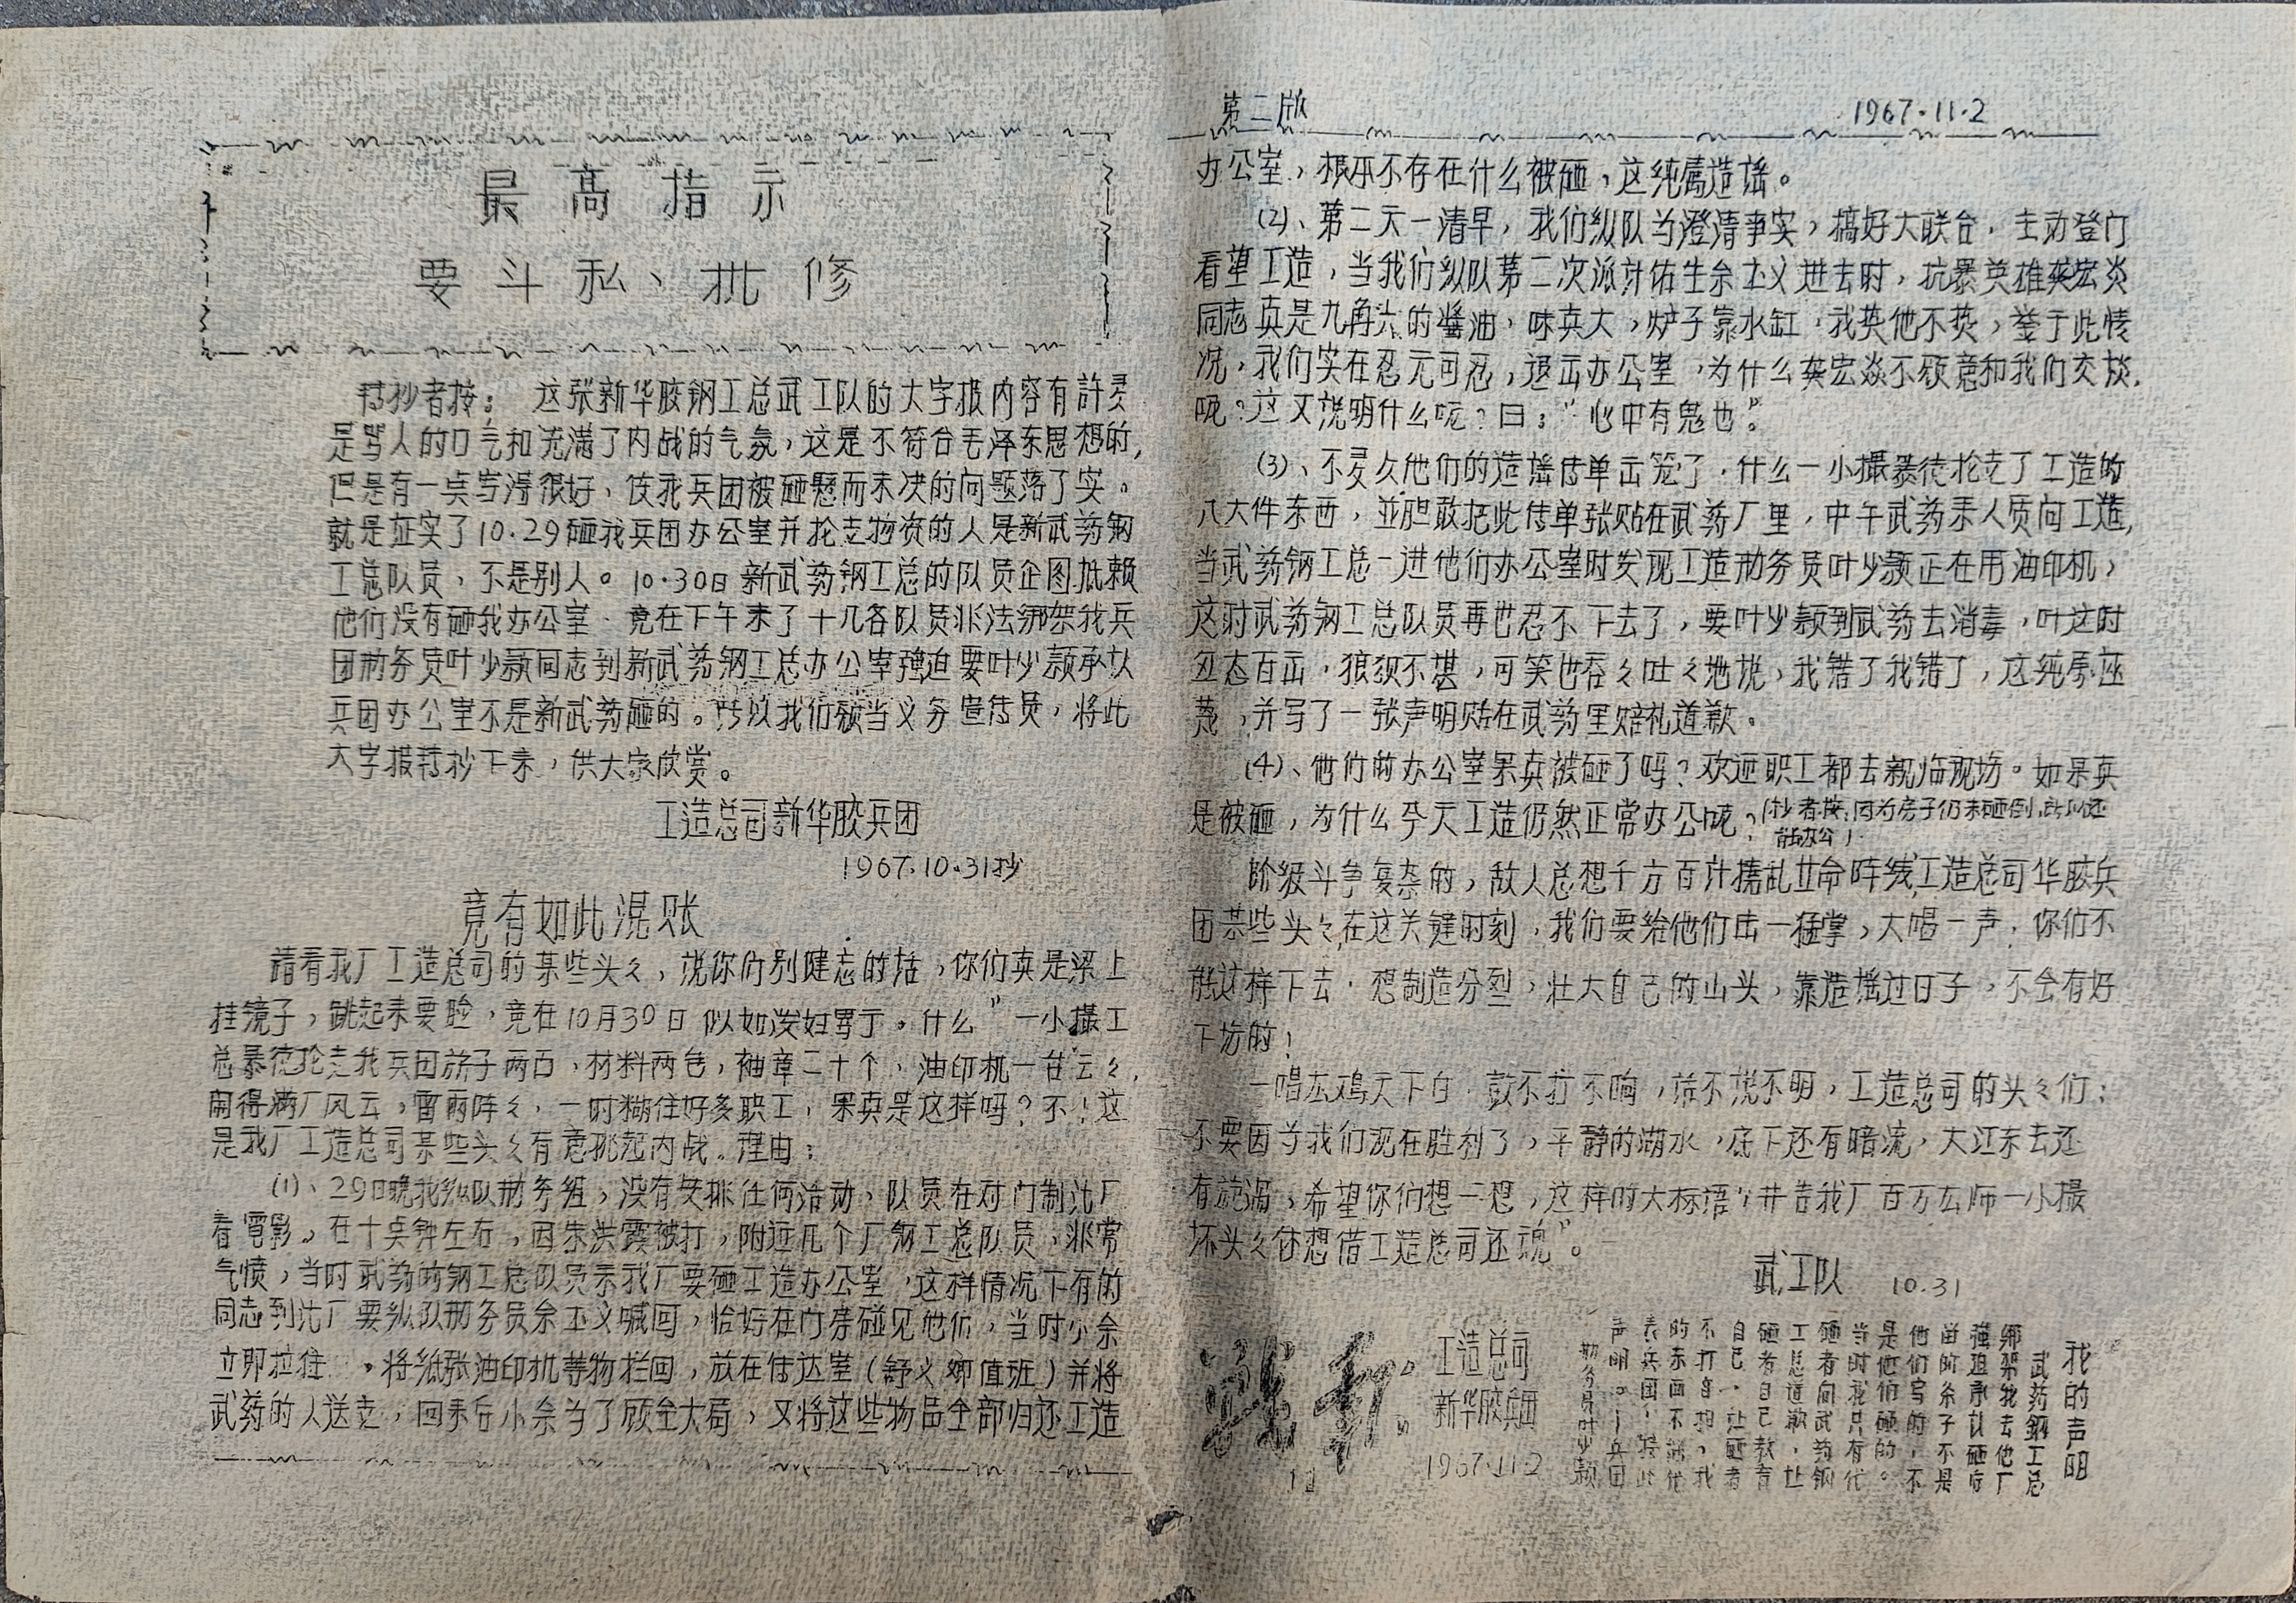 最高指示
要斗私、批修
转抄者按：　这张新华胶钢工总武工队的大字报内容有許多
是骂人的口气和充满了内战的气氛，这是不符合毛泽东思想的，
但是有一点写得很好，使我兵团被砸悬而未决的问题落了实。
就是证实了10.29砸我兵团办公室并抢走物资的人是新武药钢
工总队员，不是别人。10.30日新武药钢工总的队员企图抵赖
他们没有砸我办公室．竟在下午来了十几名队员非法绑架我兵
团勤务员叶少颖同志到新武药钢工总办公室强迫要叶少颖承认
兵团办公室不是新武药砸的。所以我们愿当义务宣传员，将此
大字报转抄下来，供大家欣赏。
工造总司新华胶兵团
1967.10.31抄
竟有如此混账
請看我厂工造总司的某些头々，说你们别健忘的话，你们真是梁上
挂镜子，跳起来要脸，竟在10月30日似如泼妇骂于。什么＂一小撮工
总暴徒抢走我兵团旗子两面，材料两包，袖章二十个，油印机一台云々，
闹得满厂风云，雷雨阵々，一时糊住好多职工，果真是这样吗？不！这
是我厂工造总司某些头々有意挑起内战。理由：
(1)、29日晚我纵队勤务组，没有安排任何活动，队员在对门制沈厂
看電影。在十点钟左右，因朱洪霞被打，附近几个厂钢工总队员，非常
气愤，当时武药的钢工总队员来我厂要砸工造办公室，这样情况下有的
同志到沈厂要纵队勤务员余正义喊回，恰好在门房碰见他们，当时小余
立即拉住　，将紙张油印机等物拦回，放在传达室（舒义卿值班）并将
武药的人送走，回来后小余为了顾全大局，又将这些物品全部归还工造
第二版　1967.11.2
办公室，根本不存在什么被砸，这纯属造谣。
(2)、第二天一清早，我们纵队为澄清事实，搞好大联合，主动登门
看望工造，当我们纵队第二次派計佑生余正义进去时，抗暴英雄龚宏炎
同志真是九角六的醬油，味真大，炉子靠水缸，我热他不热，鉴于此情
况，我们实在忍无可忍，退出办公室，为什么龚宏炎不愿意和我们交谈，
呢？这又说明什么呢？曰：“心中有鬼也”。
(3)、不多久他们的造谣传单出笼了，什么一小撮暴徒抢走了工造的
八大件东西，並胆敢把此传单张贴在武药厂里，中午武药来人质问工造，
当武药钢工总一进他们办公室时发现工造勤务员叶少颖正在用油印机，
这时武药钢工总队员再也忍不下去了，要叶少颖到武药去消毒，叶这时
丑态百出，狼狈不堪，可笑也吞々吐々地说，我错了我错了，这纯属诬
蔑，并写了一张声明贴在武药里赔礼道歉。
(4)、他们的办公室果真被砸了吗？欢迎职工都去親临现场。如果真
是被砸，为什么今天工造仍然正常办公呢？（抄者按：因为房子仍未砸倒，所以还
能办公）
阶级斗争复杂的，敌人总想千方百计搗乱革命阵线，工造总司华胶兵
团某些头々在这关键时刻，我们要给他们击一猛掌，大唱一声，你们不
能这样下去，想制造分裂，壮大自己的山头，靠造谣过日子，不会有好
下场的！
一唱东鸡天下白，鼓不打不响，话不说不明，工造总司的头々们：
不要因为我们现在胜利了，平静的湖水，底下还有暗流，大江东去还
有漩渦，希望你们想一想，这样的大标语“并告我厂百万雄师一小撮
坏头々休想借工造总司还魂”。
武工队　10.31
战报
11
工造总司
新华胶兵团
1967.11.2
我的声明
武药鋼工总
绑架我去他厂
强迫承认砸房
由的条子不是
他们写的，不
是他们砸的。
当时我只有代
砸者向武药钢
工总道歉，让
砸者自己教育
自己，让砸者
不打自招，我
的东西不能代
表兵团，特此
声明。——兵团
勤务员叶少颖